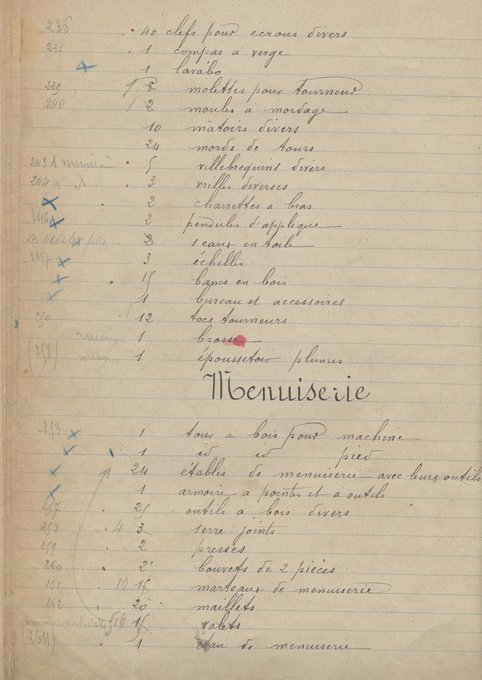 236 40 clefs pour ecrous divers
1 compas a verge
1 lavabo
239 8 molettes pour tourneur
240 2 moules a mordage
10 matoirs divers
24 mords de tours
243 5 villebrequins divers
244 3 vrilles diverses
2 charrettes à bras
2 pendules d'applique
2 seaux en toile
3 échelles
15 bancs en bois
1 bureau et accessoires
250 12 tocs tourneurs
1 brosse
(252) 1 époussetoir plumes
Menuiserie
253 1 tour a bois pour machine
1 id id pied
24 établis de menuiserie avec leurs outils
1 armoire a pointes et a outils
257 25 outils a bois divers
258 4 3 serre joints
259 2 presses
260 2 bouvets de 2 pièces
261 10 15 marteaux de menuiserie
262 20 maillets
15 valets
1 étau de menuiserie